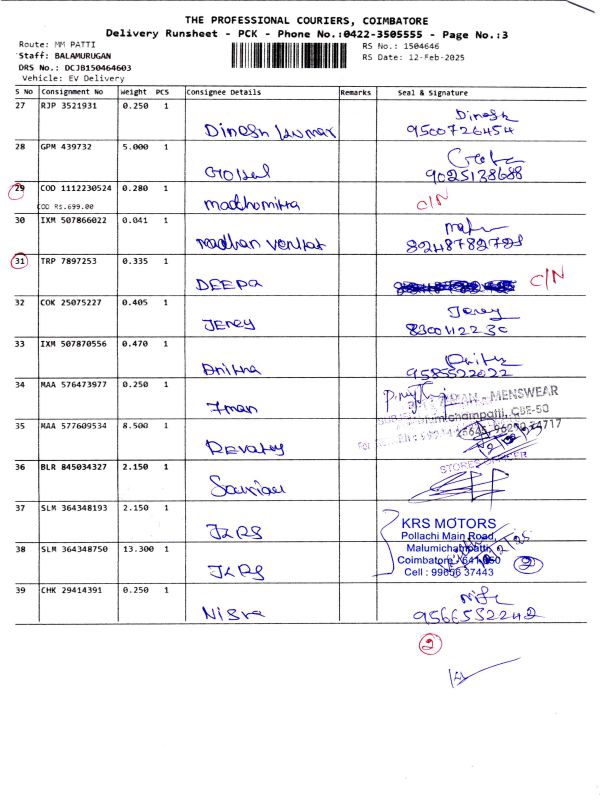 THE PROFESSIONAL COURIERS, COIMBATORE
Delivery Runsheet - PCK - Phone No.:0422-3505555 - Page No.:3
Route: MM PATTI
RS No.: 1504646
Staff: BALAMURUGAN
RS Date: 12-Feb-2025
DRS No.: DCJB150464603
Vehicle: EV Delivery
S No Consignment No Weight PCS Consignee Details Remarks Seal & Signature
27 RJP 3521931 0.250 1
Dinesh kumar
Dinesh
9500726454
28 GPM 439732 5.000 1
9025138688
29 COD 1112230524 0.280 1
COD Rs.699.00
madhomitra
C/N
30 IXM 507866022 0.041 1
madhan venkat
8248782728
31 TRP 7897253 0.335 1
DEEPA
C/N
32 COK 25075227 0.405 1
Jerey
Jerey
8300112230
33 IXM 507870556 0.470 1
Anitha
9585522022
34 MAA 576473977 0.250 1
Iman
MENSWEAR
35 MAA 577609534 8.500 1
Revathy
36 BLR 845034327 2.150 1
STORES
37 SLM 364348193 2.150 1
JKRS
KRS MOTORS
Pollachi Main Road,
38 SLM 364348750 13.300 1
JKRS
Malumichampatti,
Coimbatore - 641 050
Cell : 99656 37443
2
39 CHK 29414391 0.250 1
Nisra
9566552242
2